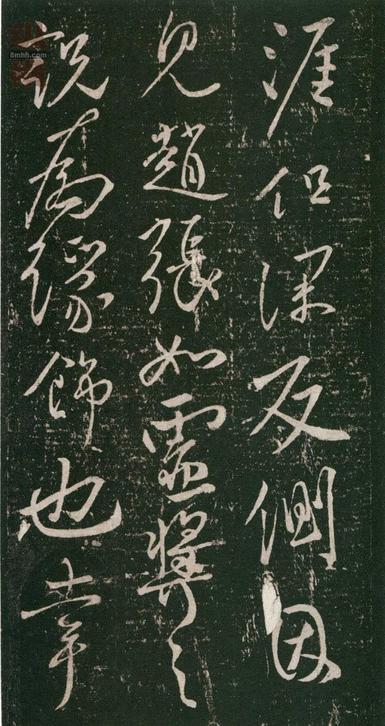 涯但深反側因
見趙張如虛獎之
說為緣飾也幸
8mhh.com